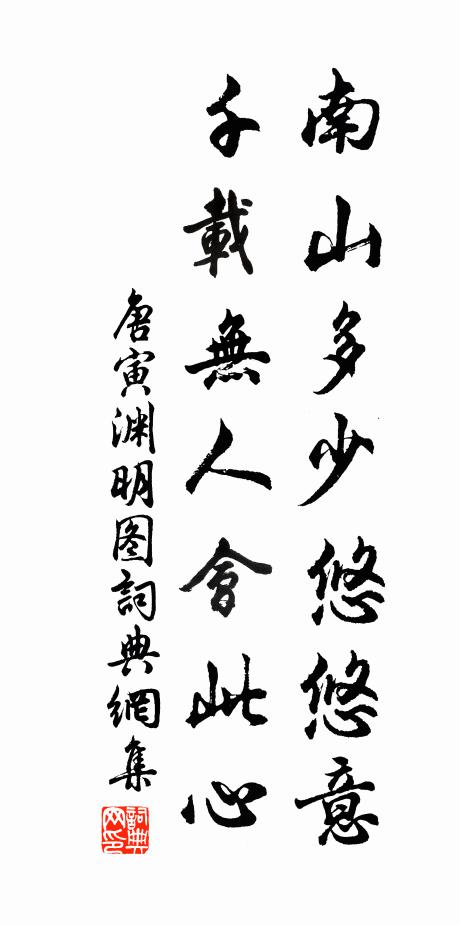 南山多少悠悠意
千載無人會此心
唐寅渊明图詞典網集
詞典网印